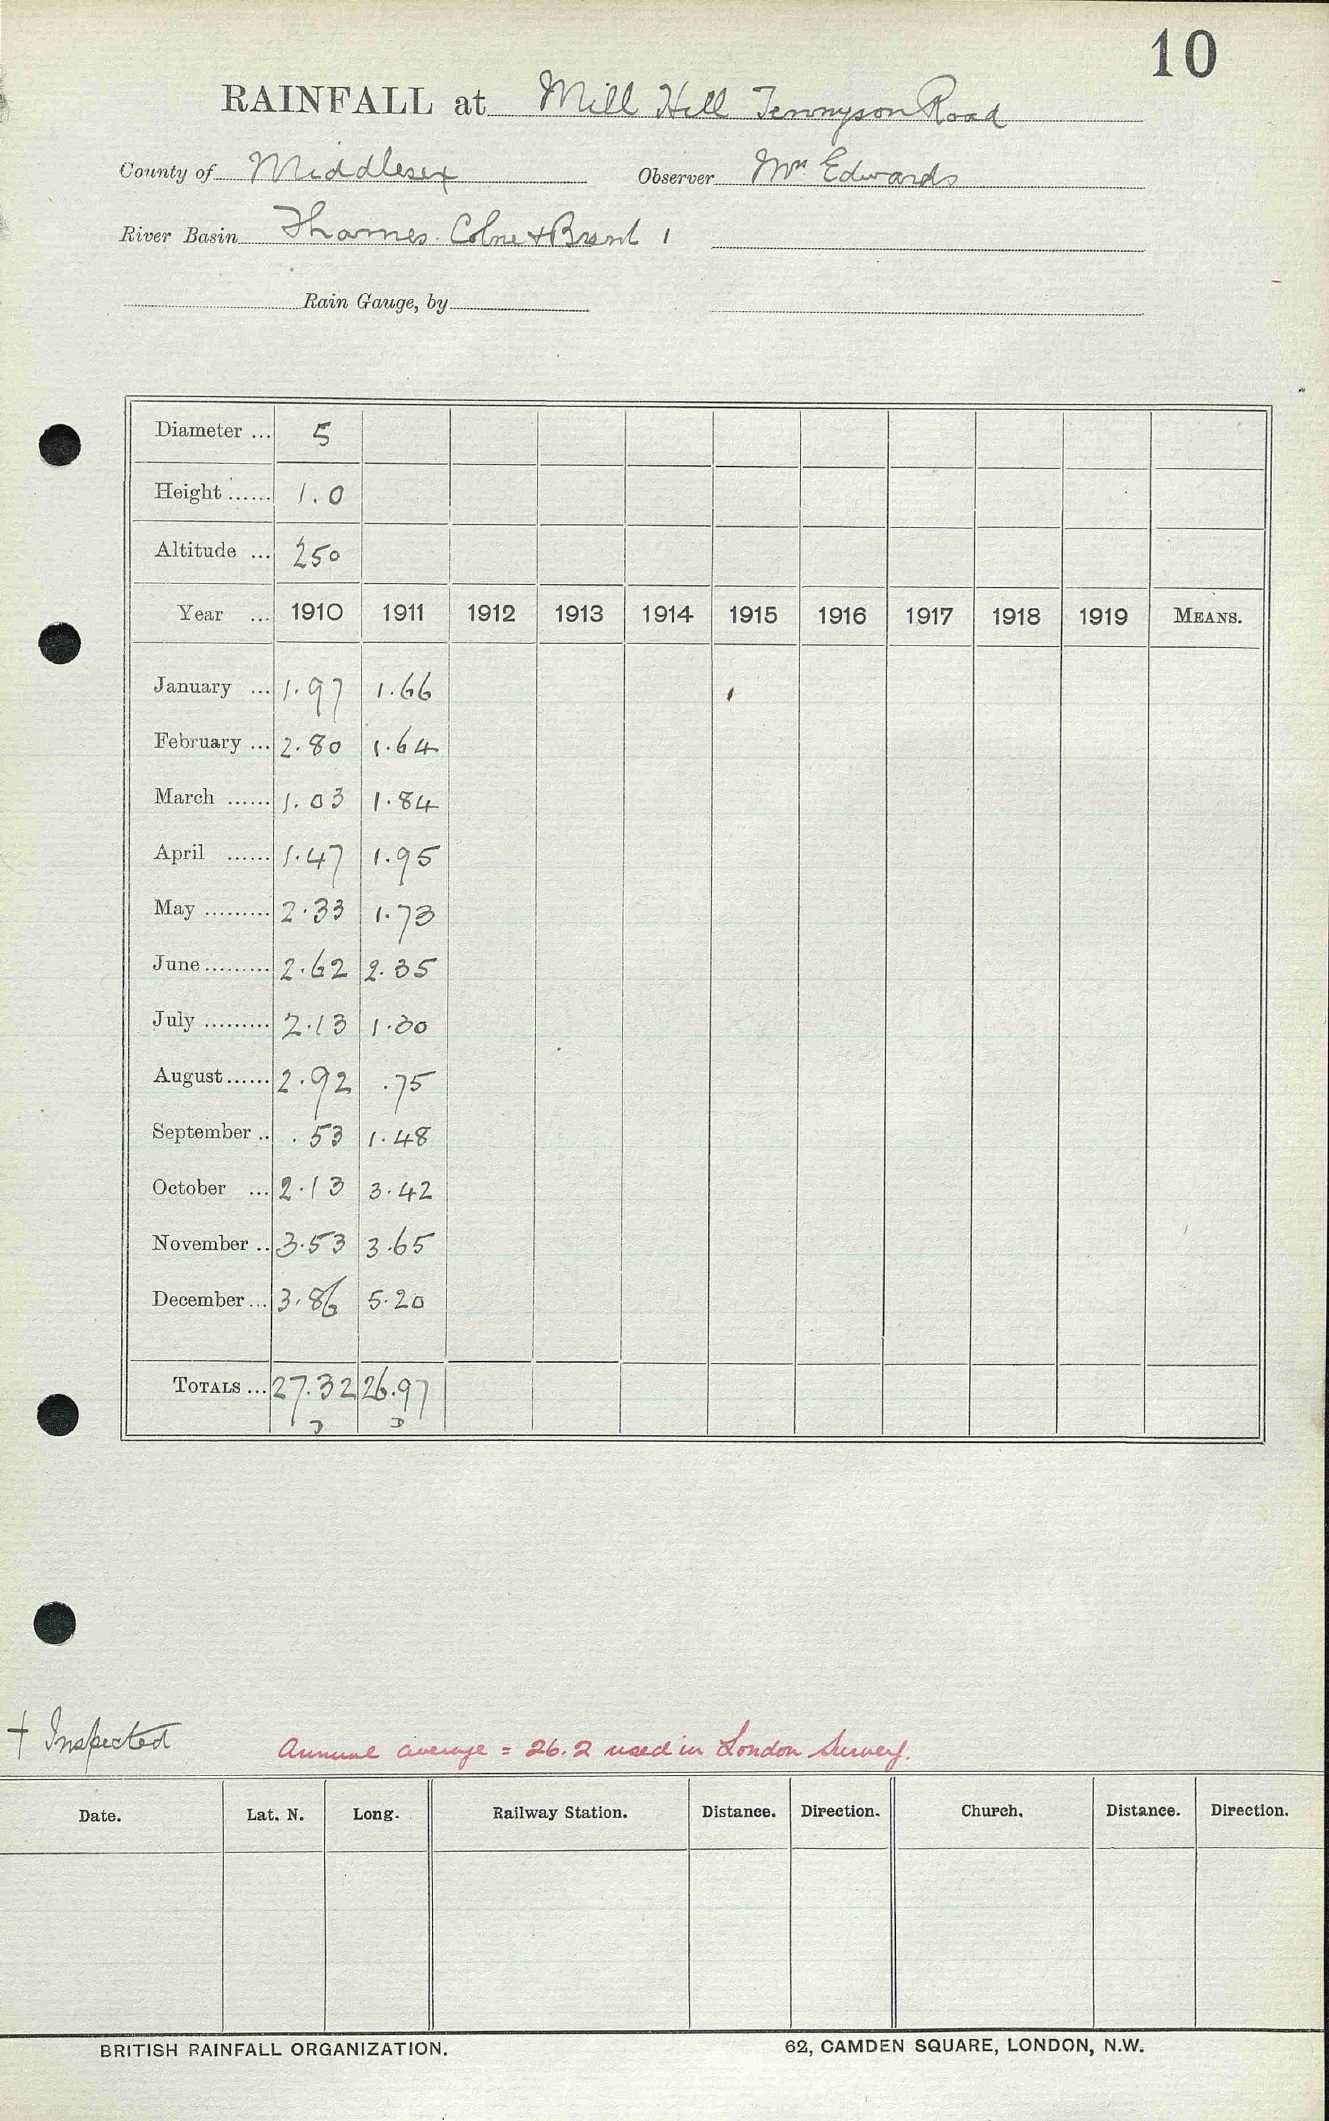 10
RAINFALL at Mill Hill Tennyson Road
County of Middlesex Observer Mr Edwards
River Basin Thames. Colne & Brent 1
Rain Gauge, by
Diameter ... 5
Height ...... 1.0
Altitude ... 250
Year ... 1910 1911 1912 1913 1914 1915 1916 1917 1918 1919 MEANS.
January ... 1.97 1.66
February ... 2.80 1.64
March ...... 1.03 1.84
April ...... 1.47 1.95
May ......... 2.33 1.73
June ......... 2.62 2.35
July ......... 2.13 1.30
August ...... 2.92 .75
September .. .53 1.48
October ... 2.13 3.42
November .. 3.53 3.65
December ... 3.86 5.20
TOTALS ... 27.32 26.97
† Inspected
Annual average = 26.2 used in London Survey.
Date. Lat. N. Long. Railway Station. Distance. Direction. Church. Distance. Direction.
BRITISH RAINFALL ORGANIZATION. 62, CAMDEN SQUARE, LONDON, N.W.